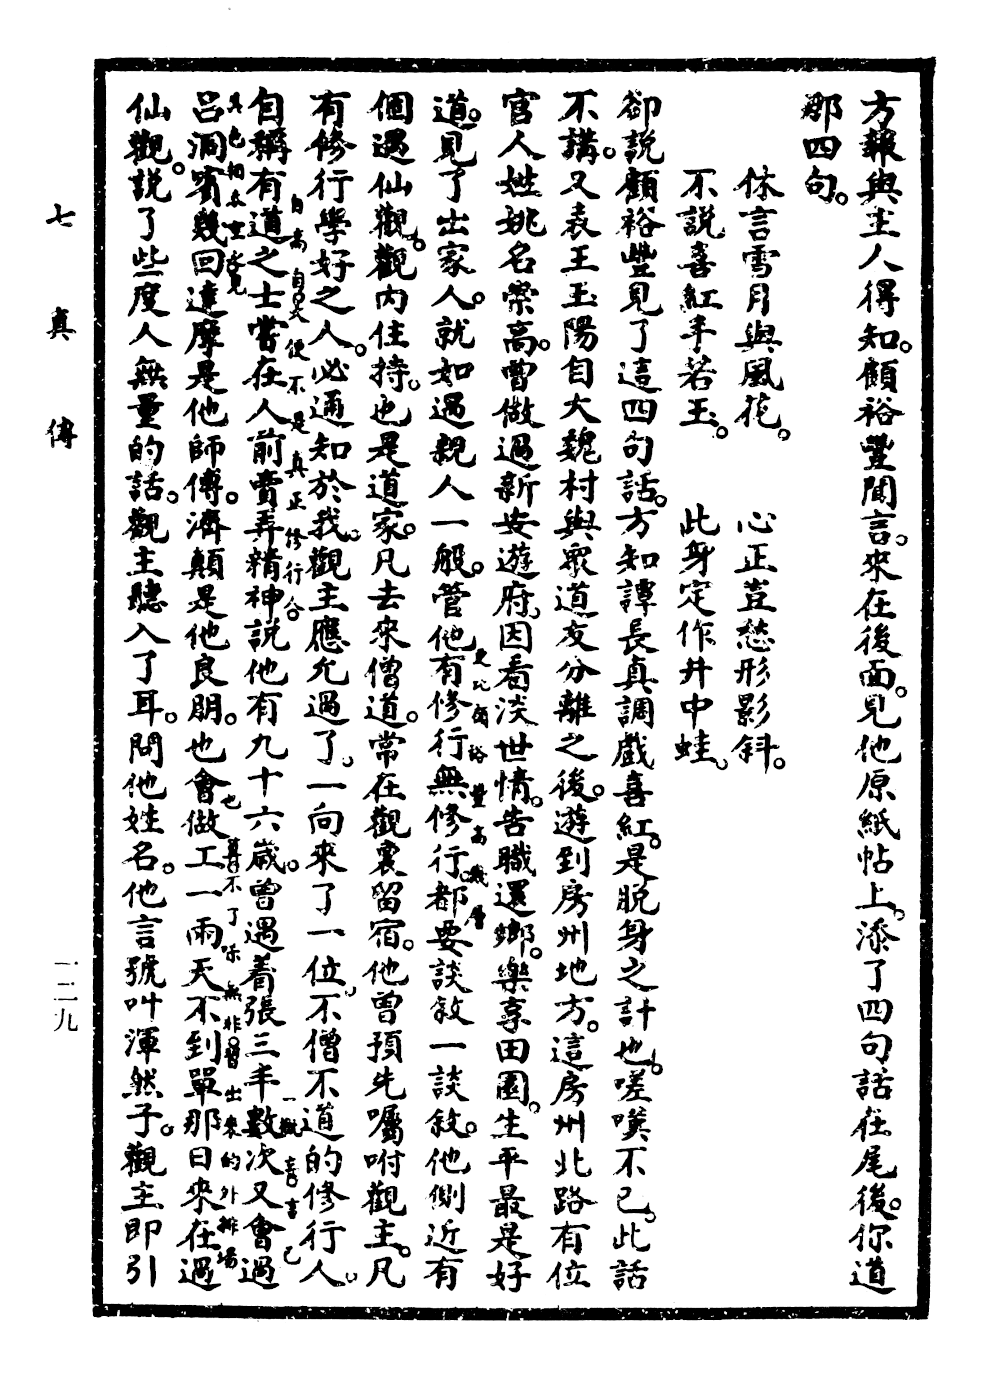 方報與主人得知。顧裕豐聞言。來在後面。見他原紙帖上。添了四句話在尾後。你道
那四句。
休言雪月與風花。　心正豈愁形影斜。
不說喜紅手若玉。　此身定作井中蛙。
卻說顧裕豐見了這四句話。方知譚長真調戲喜紅。是脫身之計也。嗟嘆不已。此話
不講。又表王玉陽自大魏村與眾道友分離之後。遊到房州地方。這房州北路有位
官人姓姚名崇高。曾做過新安遊府。因看淡世情。告職還鄉。樂享田園。生平最是好
道。見了出家人。就如遇親人一般。管他有修行無修行。都要談敘一談敘。他側近有
更比顧裕豐高幾層
個遇仙觀。觀內住持。也是道家。凡去來僧道。常在觀裏留宿。他曾預先囑咐觀主。凡
有修行學好之人。必通知於我。觀主應允過了。一向來了一位。不僧不道的修行人。
自稱有道之士嘗在人前賣弄精神說他有九十六歲。曾遇着張三丰數次又會過
自高自大便不是真正修行人
呂洞賓幾回達摩是他師傅。濟顛是他良朋。也會做工一兩天不到單那日來在遇
仙觀。說了些度人無量的話。觀主聽入了耳。問他姓名。他言號叫渾然子。觀主即引
七真傳
一二九